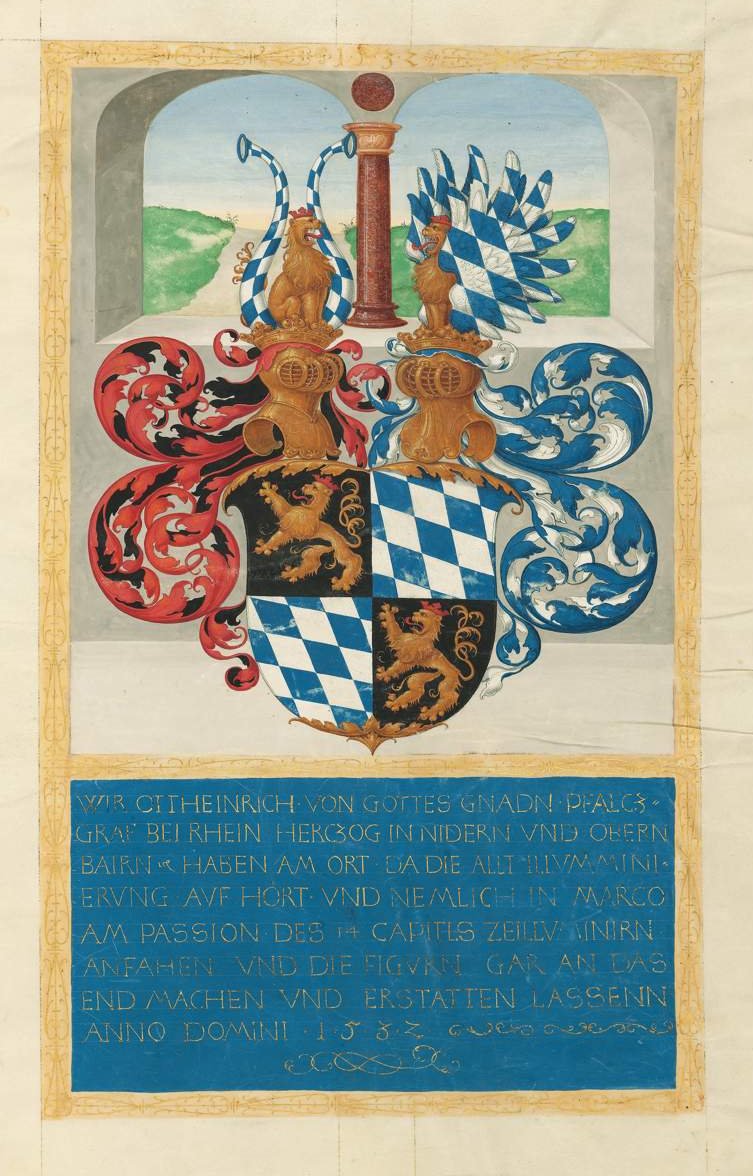 1532
WIR OTTHEINRICH · VON GOTTES GNADN · PFALCZ=
GRAF BEI RHEIN HERCZOG IN NIDERN VND OBERN
BAIRN ⁊c HABEN AM ORT DA DIE ALLT ILLVMMINI=
ERVNG AVF HÖRT · VND NEMLICH IN MARCO
AM PASSION DES 14 CAPITELS
ANFAHEN VND DIE FIGVRN GAR AN DAS
END MACHEN VND ERSTATTEN LASSENN
ANNO DOMINI · 1 · 5 3 · 2